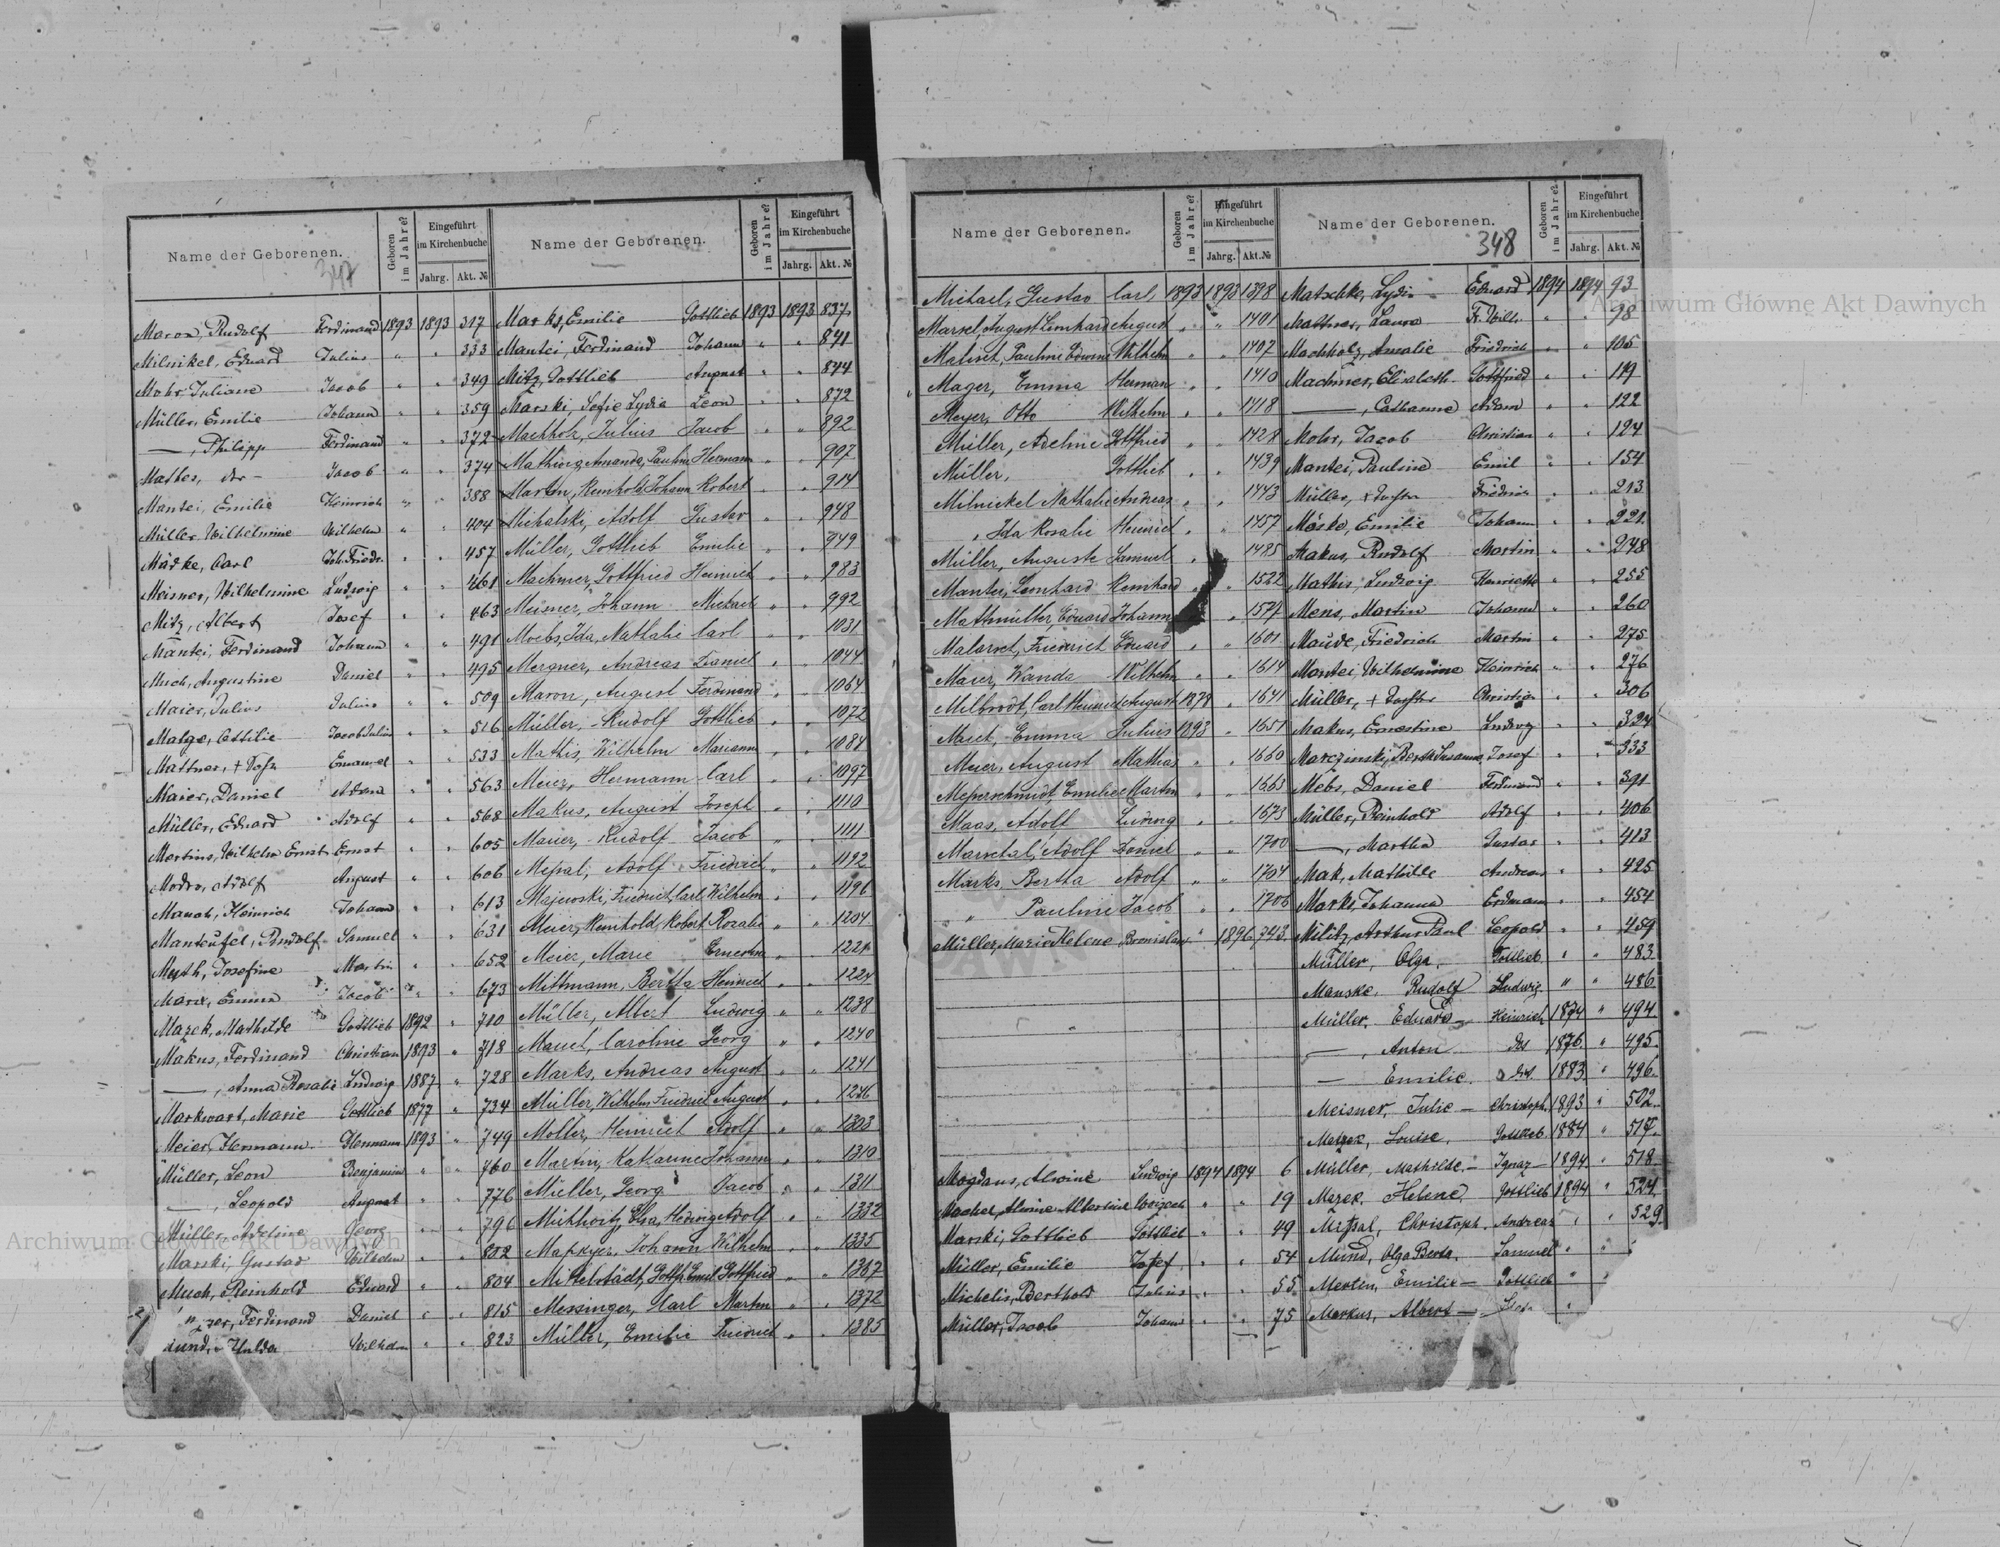 Name der Geborenen.
Geboren im Jahre?
Eingeführt im Kirchenbuche
Jahrg. Akt. №
347
Maron, Rudolf Ferdinand 1893 1893 317
Milnikel, Eduard Julius " " 333
Mohr, Juliane Jacob " " 349
Müller, Emilie Johann " " 359
—, Philipp Ferdinand " " 372
Mathes, Jacob " " 374
Mantei, Emilie Heinrich " " 388
Müller, Wilhelmine Wilhelm " " 404
Mädke, Carl Joh. Friedr. " " 457
Meisner, Wilhelmine Ludwig " " 461
Mitz, Albert Josef " " 463
Mantei, Ferdinand Johann " " 491
Much, Augustine Daniel " " 495
Maier, Julius Julius " " 509
Ottilie Jacob Julius " " 516
Mattner, + Emanuel " " 533
Maier, Daniel Adam " " 563
Müller, Eduard Adolf " " 568
Martins, Wilhelm Ernst Ernst " " 605
Modro, Adolf August " " 606
Mauch, Heinrich Johann " " 613
Manteufel, Rudolf Samuel " " 631
Muth, Josefine Martin " " 652
Marx, Emma Jacob " " 673
Mazek, Mathilde Gottlieb 1892 " 710
Makus, Ferdinand Christian 1893 " 718
—, Anna Rosalie Ludwig 1887 " 728
Markwart, Marie Gottlieb 1877 " 734
Meier, Hermann Hermann 1893 " 749
Müller, Leon Benjamin " " 760
—, Leopold August " " 776
Müller, Adeline Georg " " 796
Marski, Gustav Wilhelm " " 802
Much, Reinhold Eduard " " 804
Ferdinand Daniel " " 815
Hulda Wilhelm " " 823
Name der Geborenen.
Geboren im Jahre?
Eingeführt im Kirchenbuche
Jahrg. Akt. №
Marks, Emilie Gottlieb 1893 1893 837
Mantei, Ferdinand Johann " " 841
Mitz, Gottlieb August " " 844
Marski, Sofie Lydia Leon " " 872
Machholz, Julius Jacob " " 892
Amanda, Pauline Hermann " " 907
Martin, Reinhold Johann Robert " " 914
Michalski, Adolf Gustav " " 948
Müller, Gottlieb Emilie " " 949
Machmer, Gottfried Heinrich " " 983
Meisner, Johann Michael " " 992
Moebs, Ida, Nathalie Carl " " 1031
Mergner, Andreas Daniel " " 1044
Maron, August Ferdinand " " 1064
Müller, Rudolf Gottlieb " " 1072
Mathis, Wilhelm Marianna " " 1084
Meier, Hermann Carl " " 1097
Makus, August Joseph " " 1110
Maier, Rudolf Jacob " " 1111
Adolf Friedrich " " 1192
Majewski, Friedrich, Carl Wilhelm " " 1196
Meier, Reinhold, Robert Rosalie " " 1204
Meier, Marie Ernestine " " 1221
Mittmann, Bertha Heinrich " " 1224
Müller, Albert Ludwig " " 1238
Mauch, Caroline Georg " " 1240
Marks, Andreas August " " 1241
Müller, Wilhelm Friedrich August " " 1276
Möller, Heinrich Adolf " " 1303
Martin, Katharine Johann " " 1310
Müller, Georg Jacob " " 1311
Elsa, Hedwig Adolf " " 1332
Johann Wilhelm " " 1335
Mittelstädt, Emil Gottfried " " 1367
Messinger, Karl Martin " " 1372
Müller, Emilie Friedrich " " 1385
Name der Geborenen.
Geboren im Jahre?
Eingeführt im Kirchenbuche
Jahrg. Akt. №
Michael, Gustav Carl 1893 1893 1398
August Leonhard August " " 1401
Pauline Wilhelm " " 1407
Mager, Emma Herman " " 1410
Meyer, Otto Wilhelm " " 1418
Müller, Adeline Gottfried " " 1428
Müller, Gottlieb " " 1439
Milnickel Nathalie Andreas " " 1443
" Ida Rosalie Heinrich " " 1457
Müller, Auguste Samuel " " 1485
Mantei, Leonhard Reinhard " " 1522
Mathmüller, Eduard Johann " 1577
Friedrich Eduard " " 1601
Maier, Wanda Wilhelm " " 1614
Milbrodt, Carl Heinrich August 1878 " 1641
Emma Julius 1893 " 1651
Meier, August Mathias " " 1660
Messerschmidt, Emilie Martin " " 1663
Maas, Adolf Ludwig " " 1673
Adolf Daniel " " 1700
Marks, Bertha Adolf " " 1704
" Pauline Jacob " " 1706
Müller, Marie Helene Bronislaw " 1896 743
Magdans, Alwine Ludwig 1894 1894 6
Macher, Alwine Albertine " " 19
Marski, Gottlieb Gottlieb " " 49
Müller, Emilie Josef " " 54
Michelis, Berthold Julius " " 55
Müller, Jacob Johann " " 75
Name der Geborenen.
Geboren im Jahre?
Eingeführt im Kirchenbuche
Jahrg. Akt. №
348
Matschke, Lydia Eduard 1894 1894 93
Mattner, Laura Fr. Wilh. " " 98
Machholz, Amalie Friedrich " " 105
Machmer, Elisabeth Gottfried " " 119
—, Catharine Adam " " 122
Mohr, Jacob Christian " " 124
Mantei, Pauline Emil " " 154
Müller, + Friedrich " " 213
Mäske, Emilie Johann " " 221
Makus, Rudolf Martin " " 248
Mathis, Ludwig Henriette " " 255
Mens, Martin Johann " " 260
Maude, Friedrich Martin " " 275
Mantei, Wilhelmine Heinrich " " 276
Müller, + Christian " " 306
Makus, Ernestine Ludwig " " 324
Marczinski, Berth. Susanna Josef " " 333
Mebs, Daniel Ferdinand " " 391
Müller, Reinhold Adolf " " 406
—, Martha Gustav " " 413
Mak, Mathilde Andreas " " 425
Mark, Johanna Erdmann " " 454
Militz, Arthur Paul Leopold " " 459
Müller, Olga Gottlieb " " 483
Manske, Rudolf Ludwig " " 486
Müller, Eduard Heinrich 1874 " 494
—, Anton dto 1876 " 495
— Emilie dto 1883 " 496
Meisner, Julie Christoph 1893 " 502
Louise Gottlieb 1884 " 517
Müller, Mathilde Ignaz 1894 " 518
Mazek, Helene Gottlieb 1894 " 524
Christoph Andreas " " 529
Mund, Olga Berta Samuel " "
Mertin, Emilie Gottlieb " "
Markus, Albert "
Archiwum Główne Akt Dawnych
Archiwum Główne Akt Dawnych